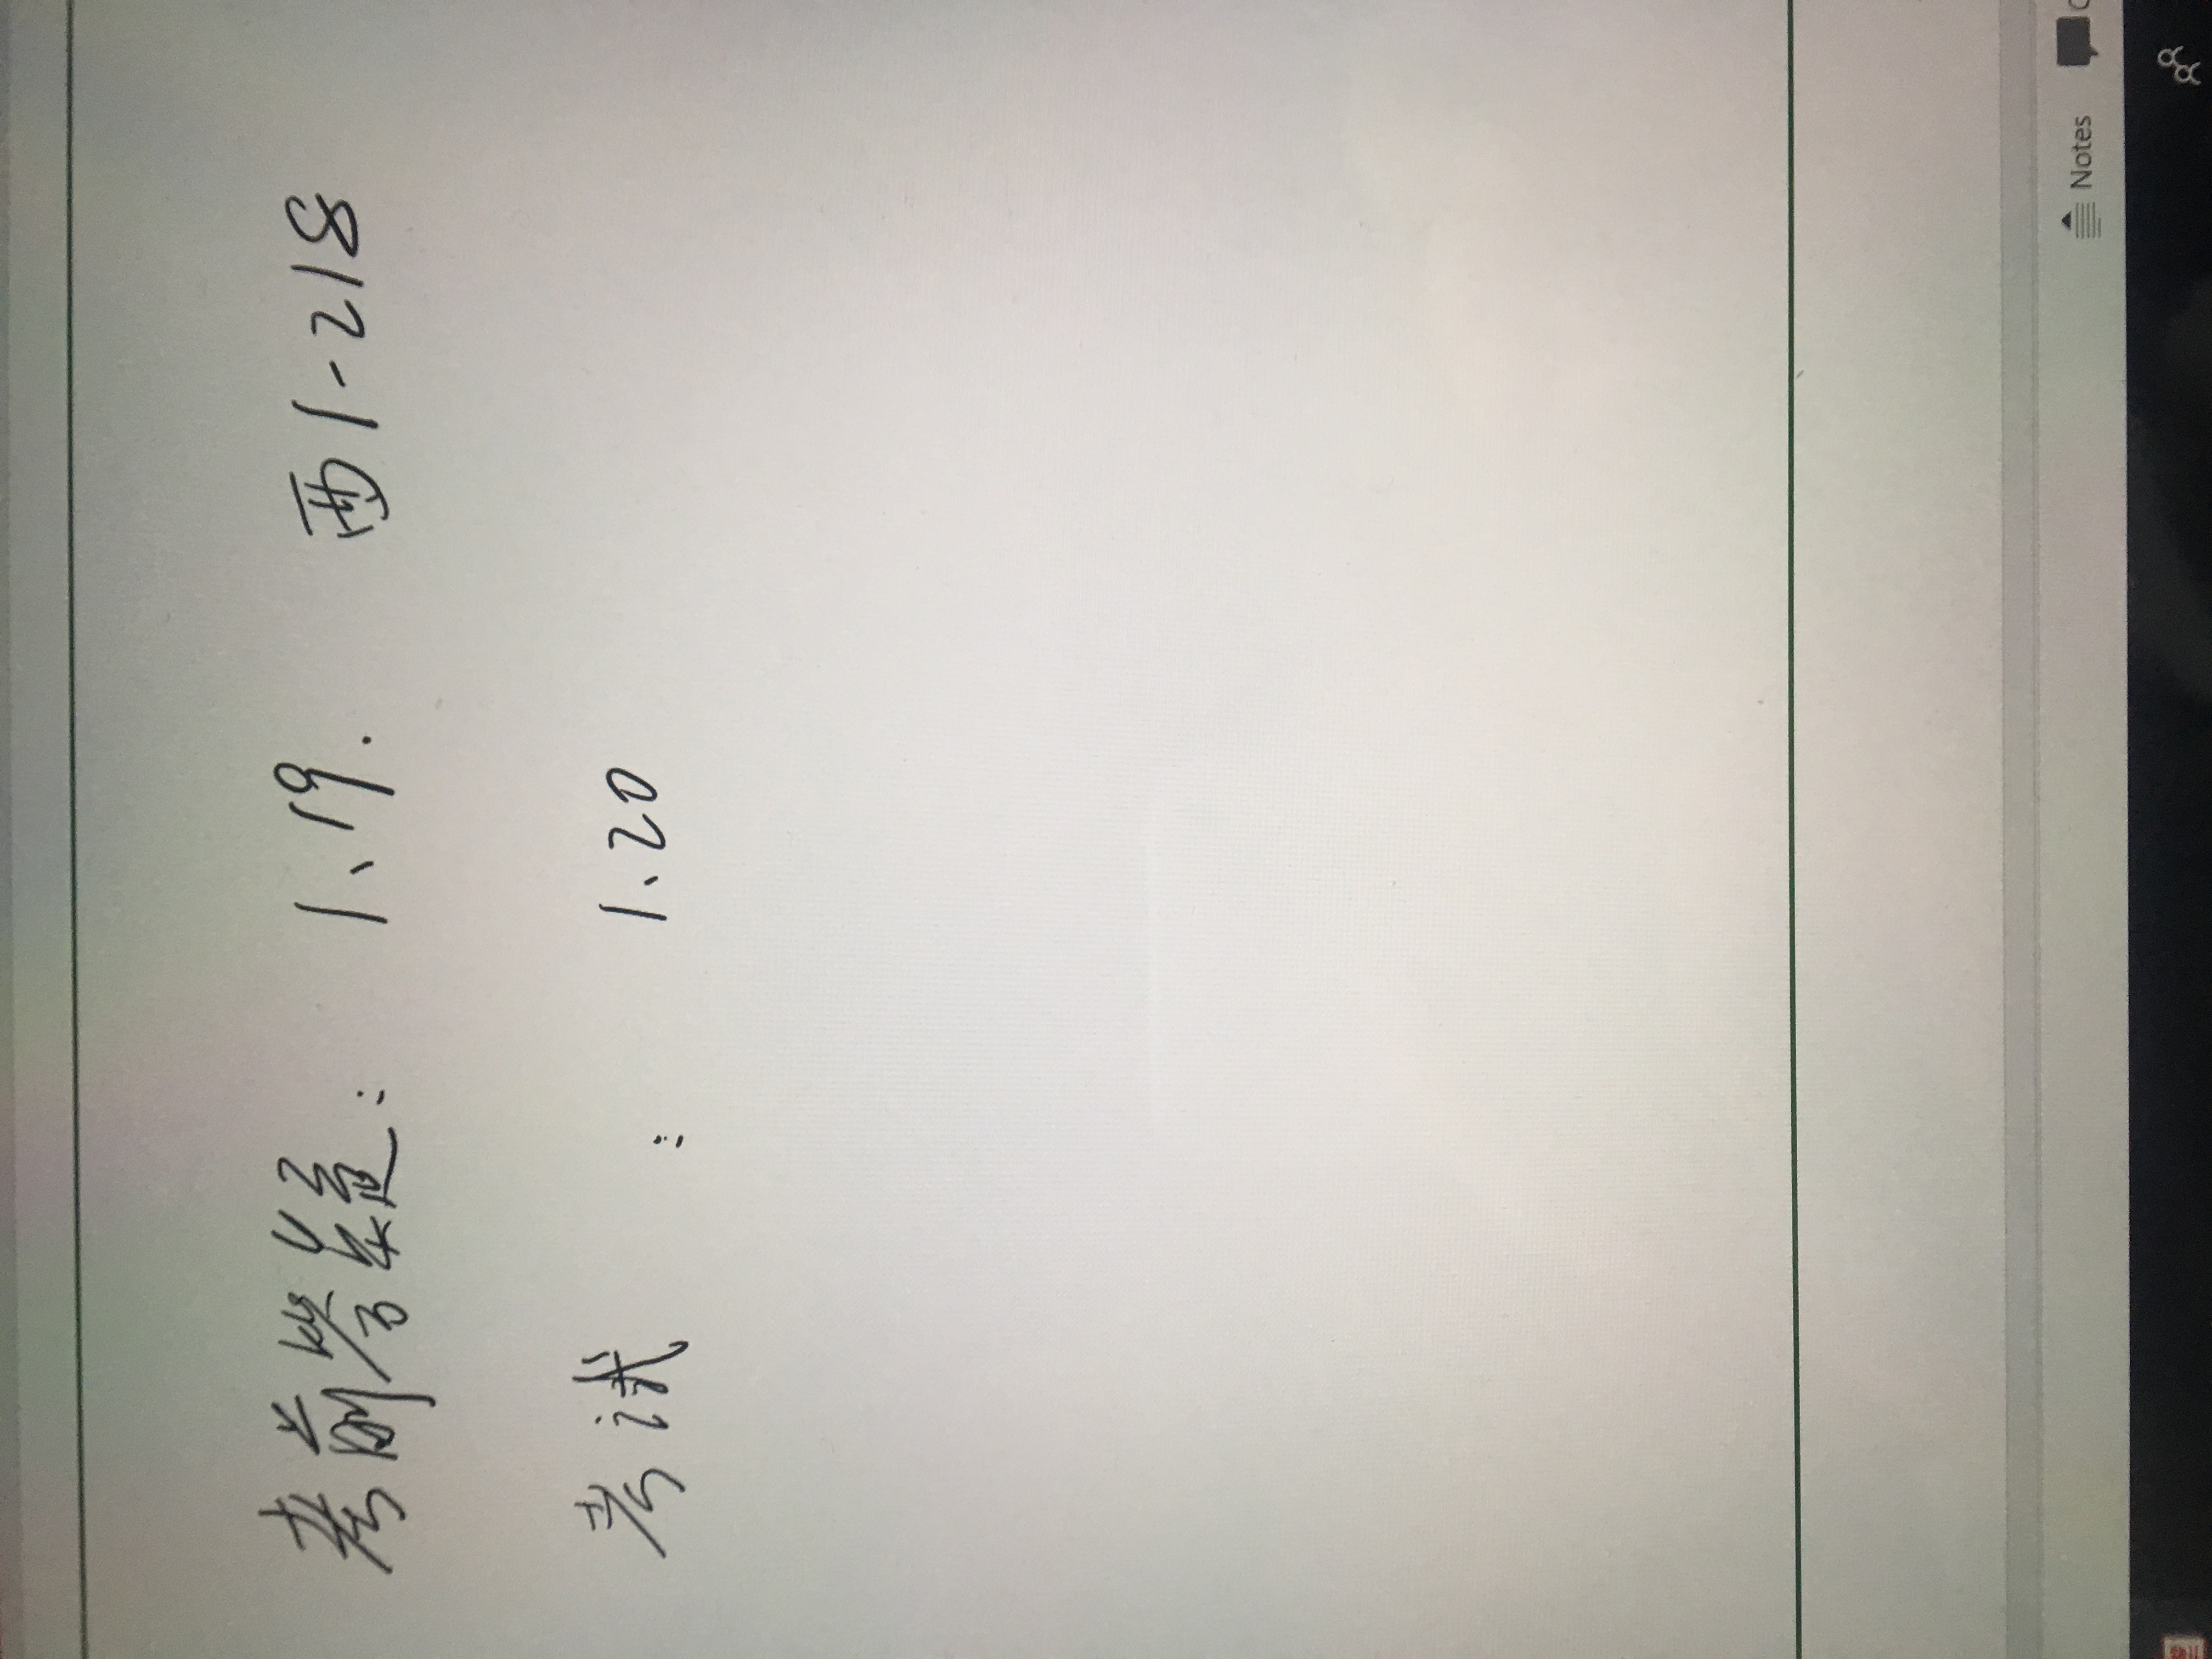 考前答疑： 1、19. 西1-218
考试 ： 1、20
Notes